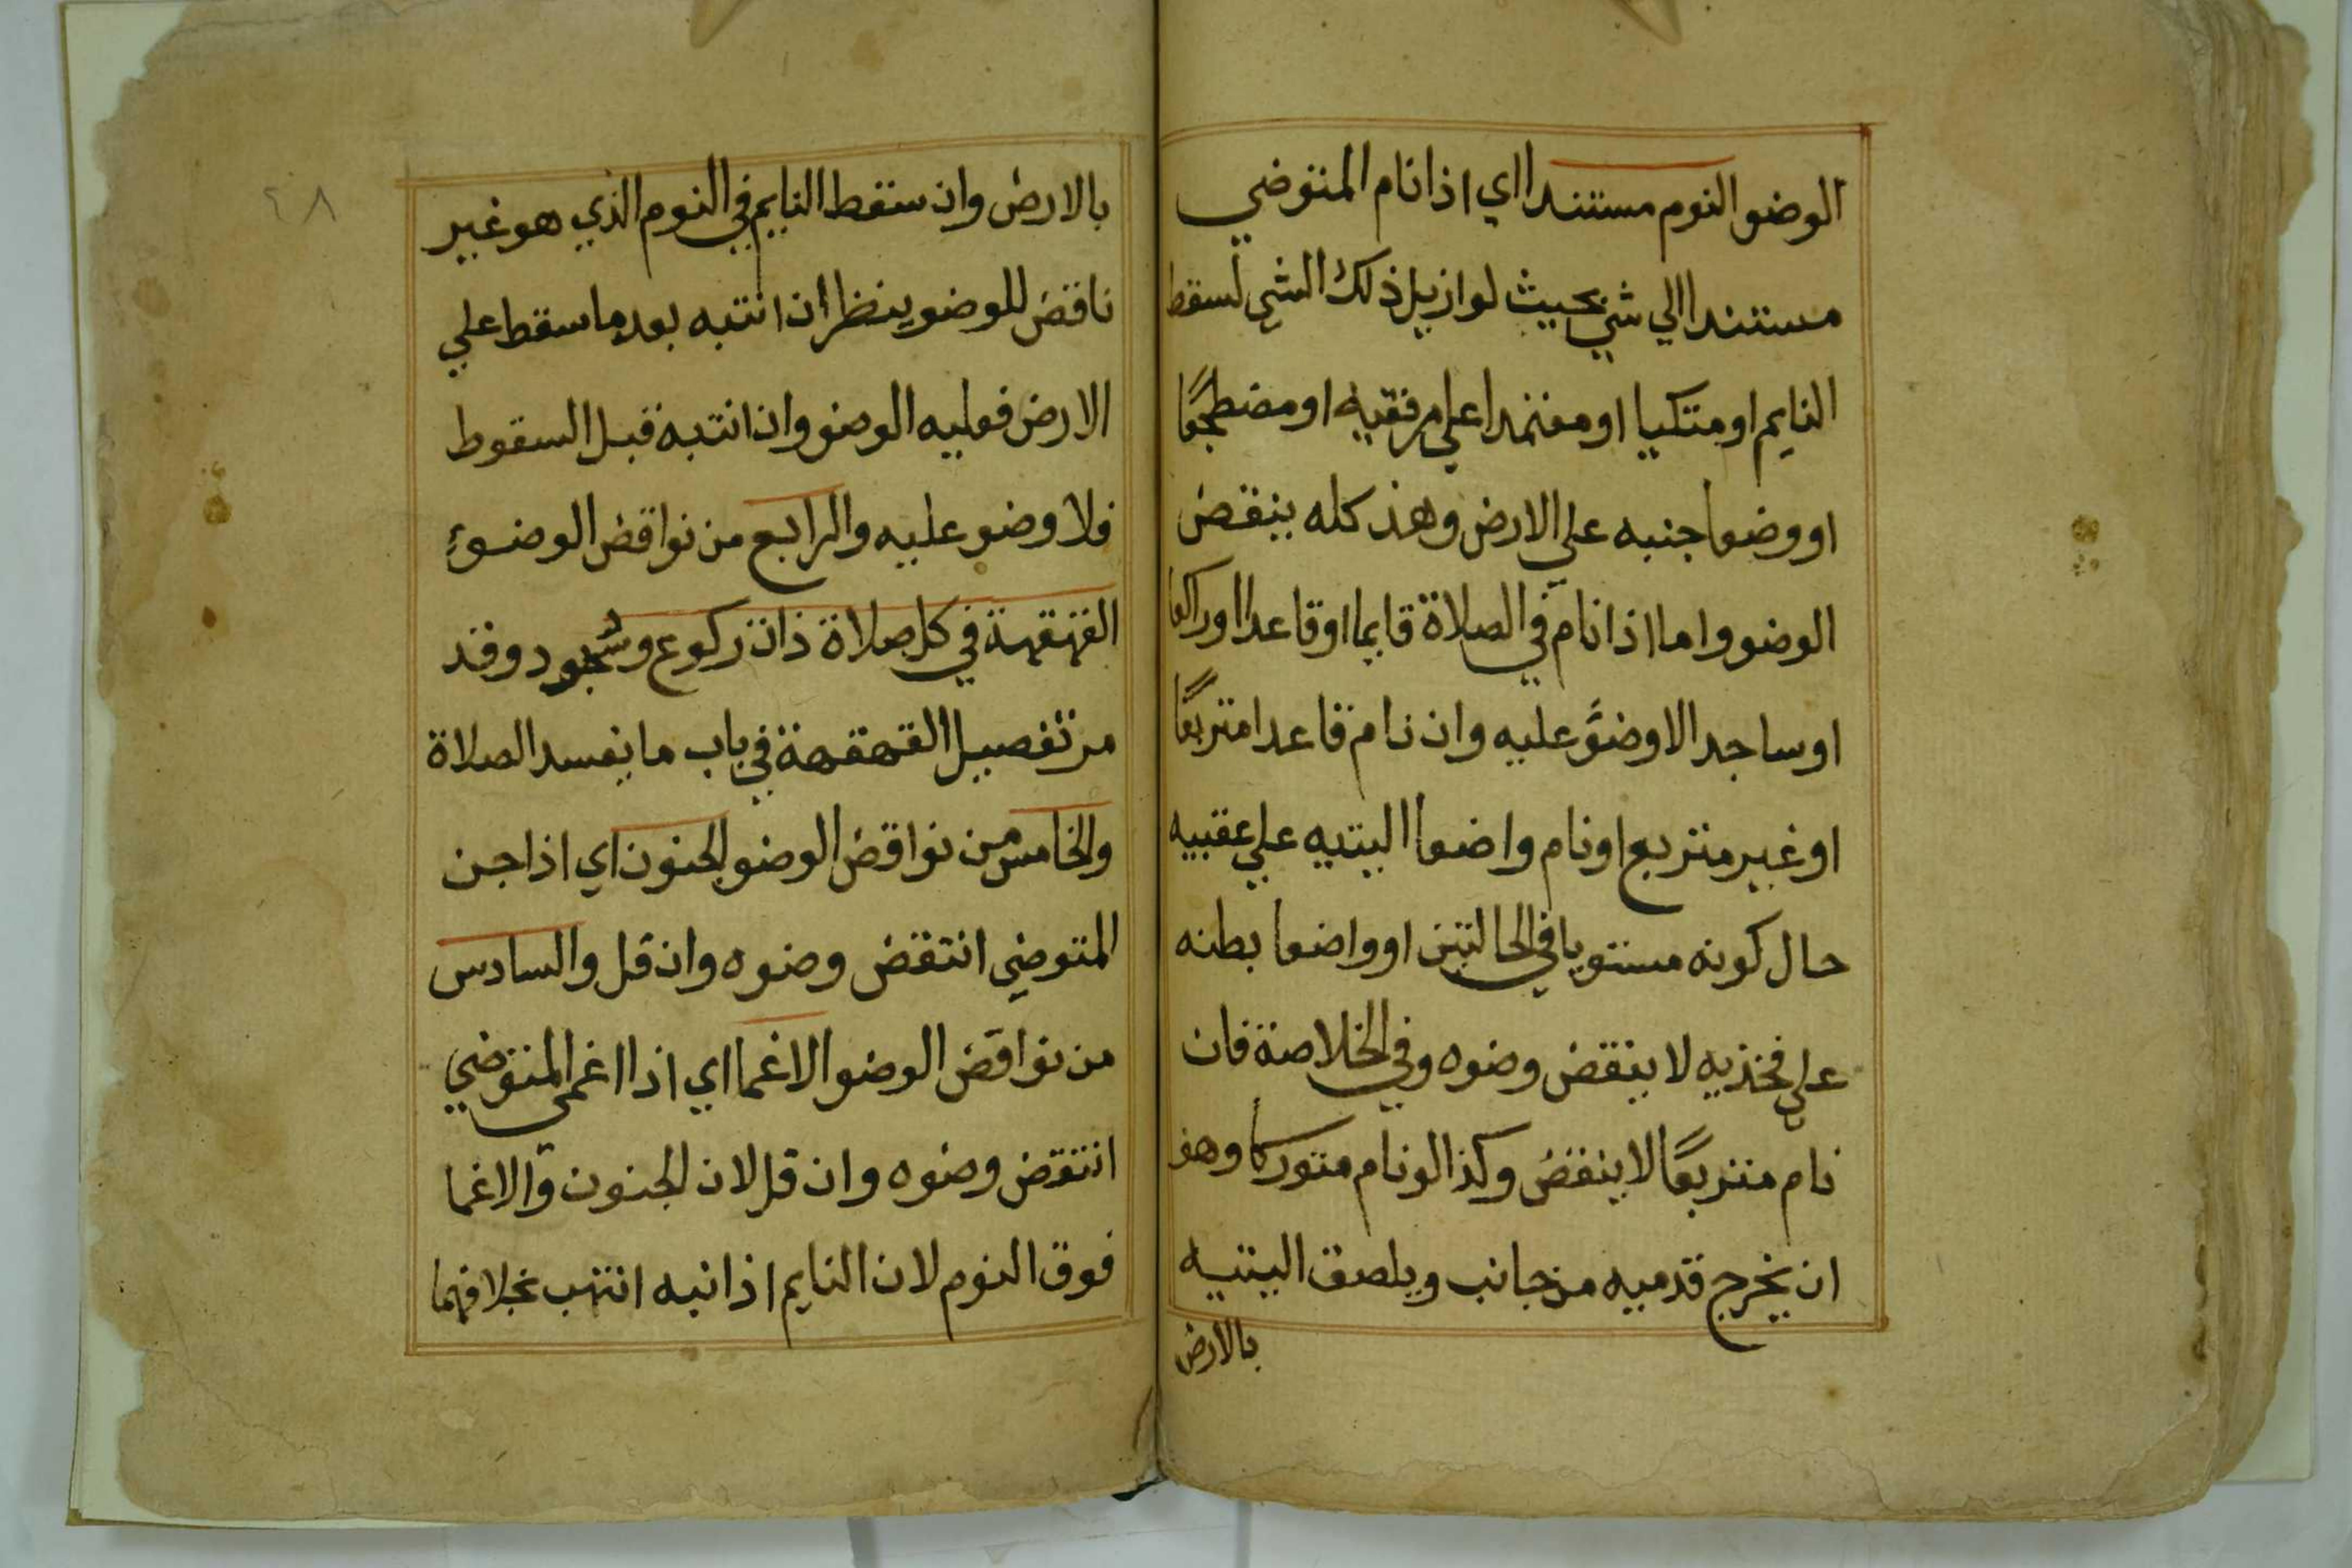 الوضو النوم مستندا اي اذا نام المتوضي
مستندا الي شي بحيث لو ازيل ذلك الشي لسقط
النايم او متكيا او معتمدا علي مرفقيه او مضطجعًا
او وضعا جنبه علي الارض وهذ كله ينقض
الوضو واما اذا نام في الصلاة قايما او قاعدا او راكعا
او ساجد الا وضوَّ عليه وان نام قاعدا متربعًا
او غير متربع او نام واضعا اليتيه علي عقبيه
حال كونه مستويا في الحالتين او واضعا بطنه
علي فخذيه لا ينقض وضوه وفي الخلاصة فان
نام متربعًا لا ينقض وكذا لو نام متوركا وهو
ان يخرج قدميه من جانب ويلصق اليتيه
بالارض
٤٨
بالارض وان سقط النايم في النوم الذي هو غير
ناقض للوضو ينظر ان انتبه بعد ما سقط علي
الارض فعليه الوضو وان انتبه قبل السقوط
فلا وضو عليه والرابع من نواقض الوضوءِ
القهقهة في كل صلاة ذات ركوع وسجود وقد
مر تفصيل القهقهة في باب ما يفسد الصلاة
والخامس من نواقض الوضو الجنون اي اذا جن
المتوضي انتقض وضوه وان قل والسادس
من نواقض الوضو الاغما اي اذا اغمي المتوضي
انتقض وضوه وان قل لان الجنون والاغما
فوق النوم لان النايم اذا نبه انتهب بخلافهما